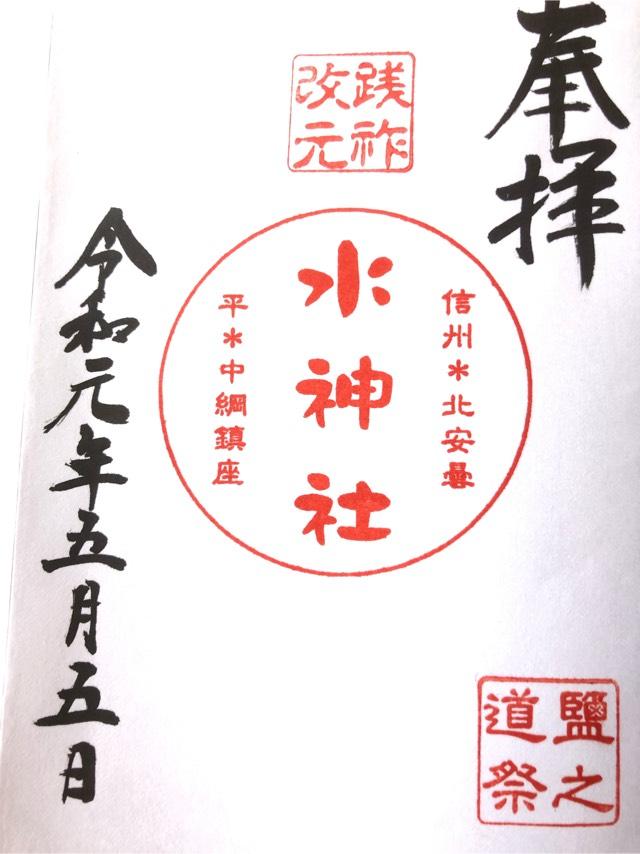 奉拝
践祚
改元
信州＊北安曇
水神社
平＊中綱鎮座
鹽之
道祭
令和元年五月五日